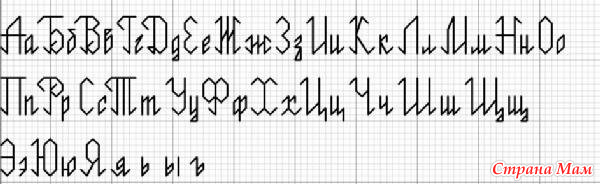 Аа Бб Вв Гг Дд Ее Жж Зз Ии Кк Лл Мм Нн Оо
Пп Рр Сс Тт Уу Фф Хх Цц Чч Шш Щщ
Ээ Юю Я я ь ы ъ
Страна Мам